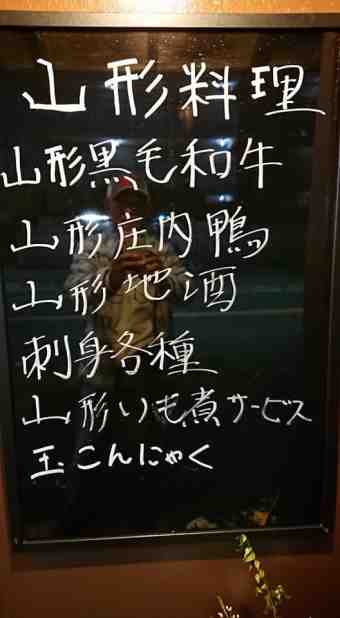 山形料理
山形黒毛和牛
山形庄内鴨
山形地酒
刺身各種
山形いも煮サービス
玉こんにゃく